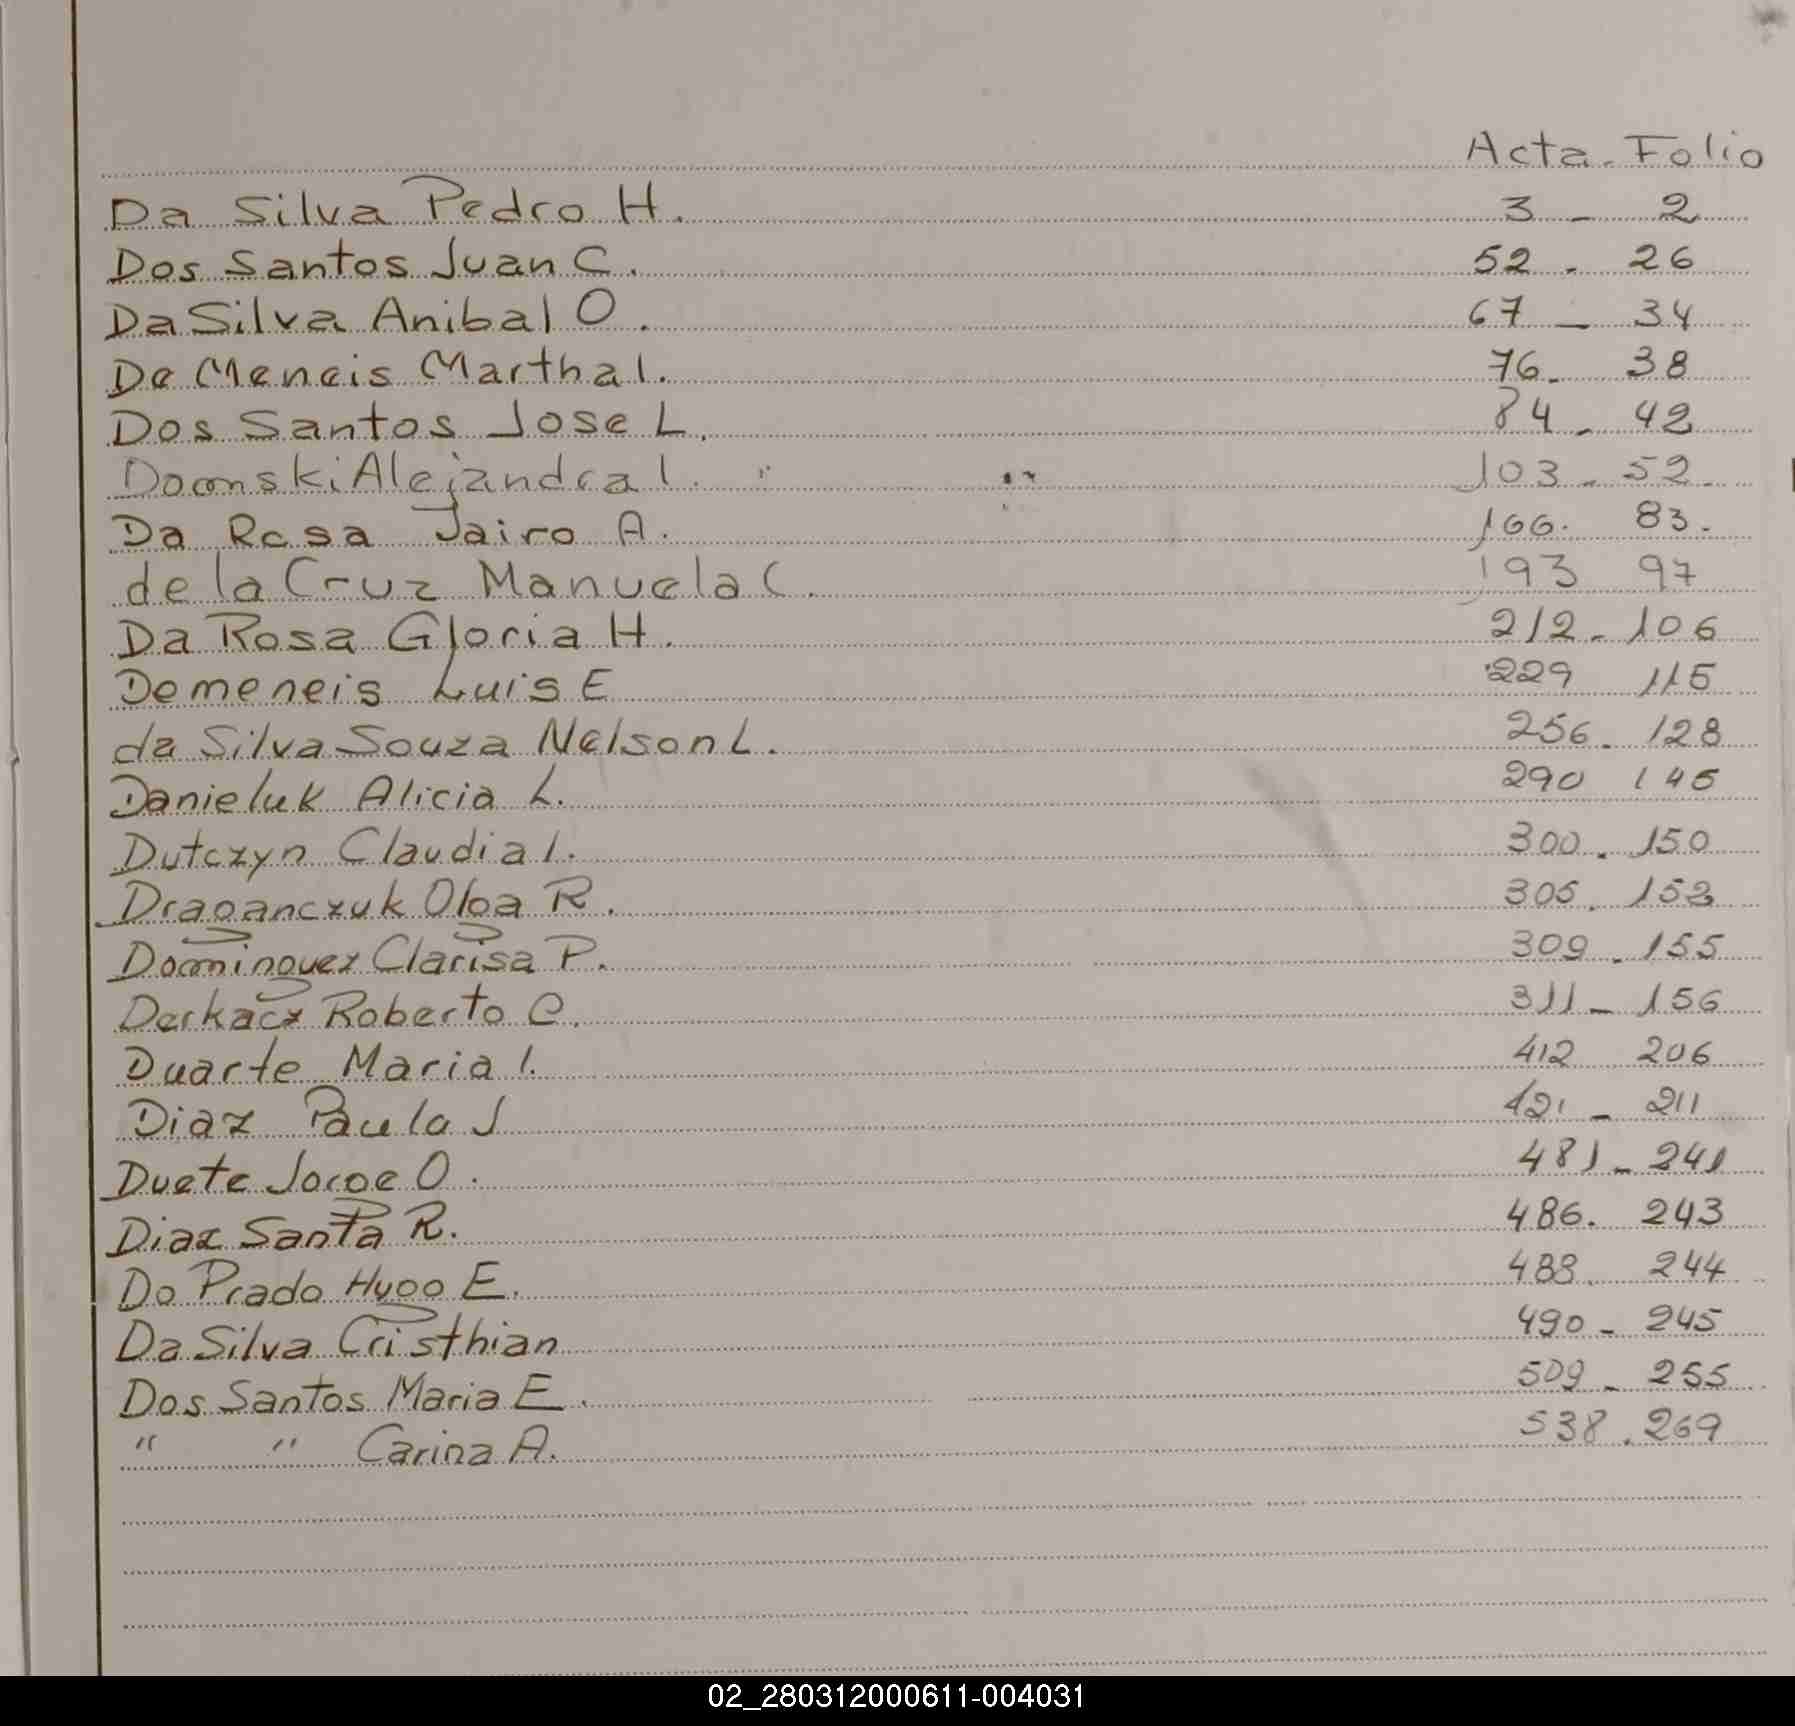 Acta. Folio
Da Silva Pedro H. 3 - 2
Dos Santos Juan C. 52 - 26
Da Silva Anibal O. 67 - 34
De Meneis Martha I. 76 - 38
Dos Santos Jose L. 84 - 42
Domski Alejandra I. 103 - 52
Da Rosa Jairo A. 166. 83.
de la Cruz Manuela C. 193 97
Da Rosa Gloria H. 212 - 106
Demeneis Luis E 229 115
da Silva Souza Nelson L. 256 - 128
Danieluk Alicia L. 290 145
Dutczyn Claudia I. 300 . 150
Draganczuk Olga R. 305 . 153
Dominguez Clarisa P. 309 . 155
Derkacz Roberto C. 311 - 156
Duarte Maria I. 412 206
Diaz Paula J 421 - 211
Duete Jorge O. 481 - 241
Diaz Santa R. 486. 243
Do Prado Hugo E. 488. 244
Da Silva Cristhian 490 - 245
Dos Santos Maria E. 509 - 255
" " Carina A. 538 . 269
02_280312000611-004031